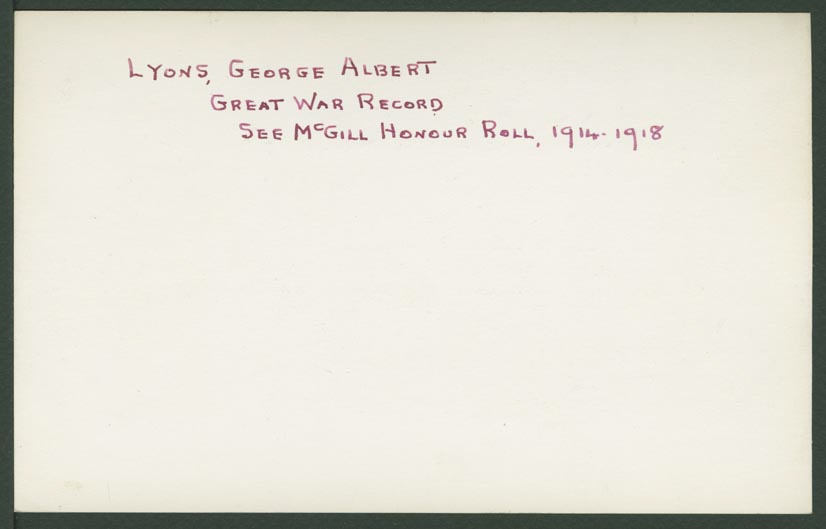 LYONS, GEORGE ALBERT
GREAT WAR RECORD
SEE McGILL HONOUR ROLL, 1914-1918